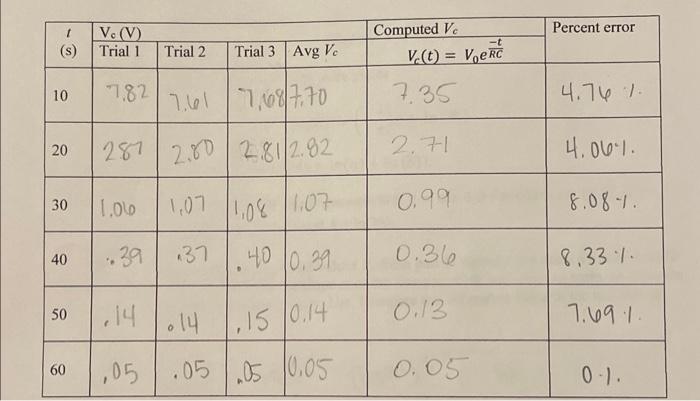 t (s) | Vc (V) | Computed Vc | Percent error
Trial 1 | Trial 2 | Trial 3 | Avg Vc | Vc(t) = V0e^(-t/RC)
10 | 7.82 | 7.61 | 7.68 | 7.70 | 7.35 | 4.76 %.
20 | 2.87 | 2.80 | 2.81 | 2.82 | 2.71 | 4.06 %.
30 | 1.06 | 1.07 | 1.08 | 1.07 | 0.99 | 8.08 %.
40 | .39 | .37 | .40 | 0.39 | 0.36 | 8.33 %.
50 | .14 | .14 | .15 | 0.14 | 0.13 | 7.69 %.
60 | .05 | .05 | .05 | 0.05 | 0.05 | 0 %.